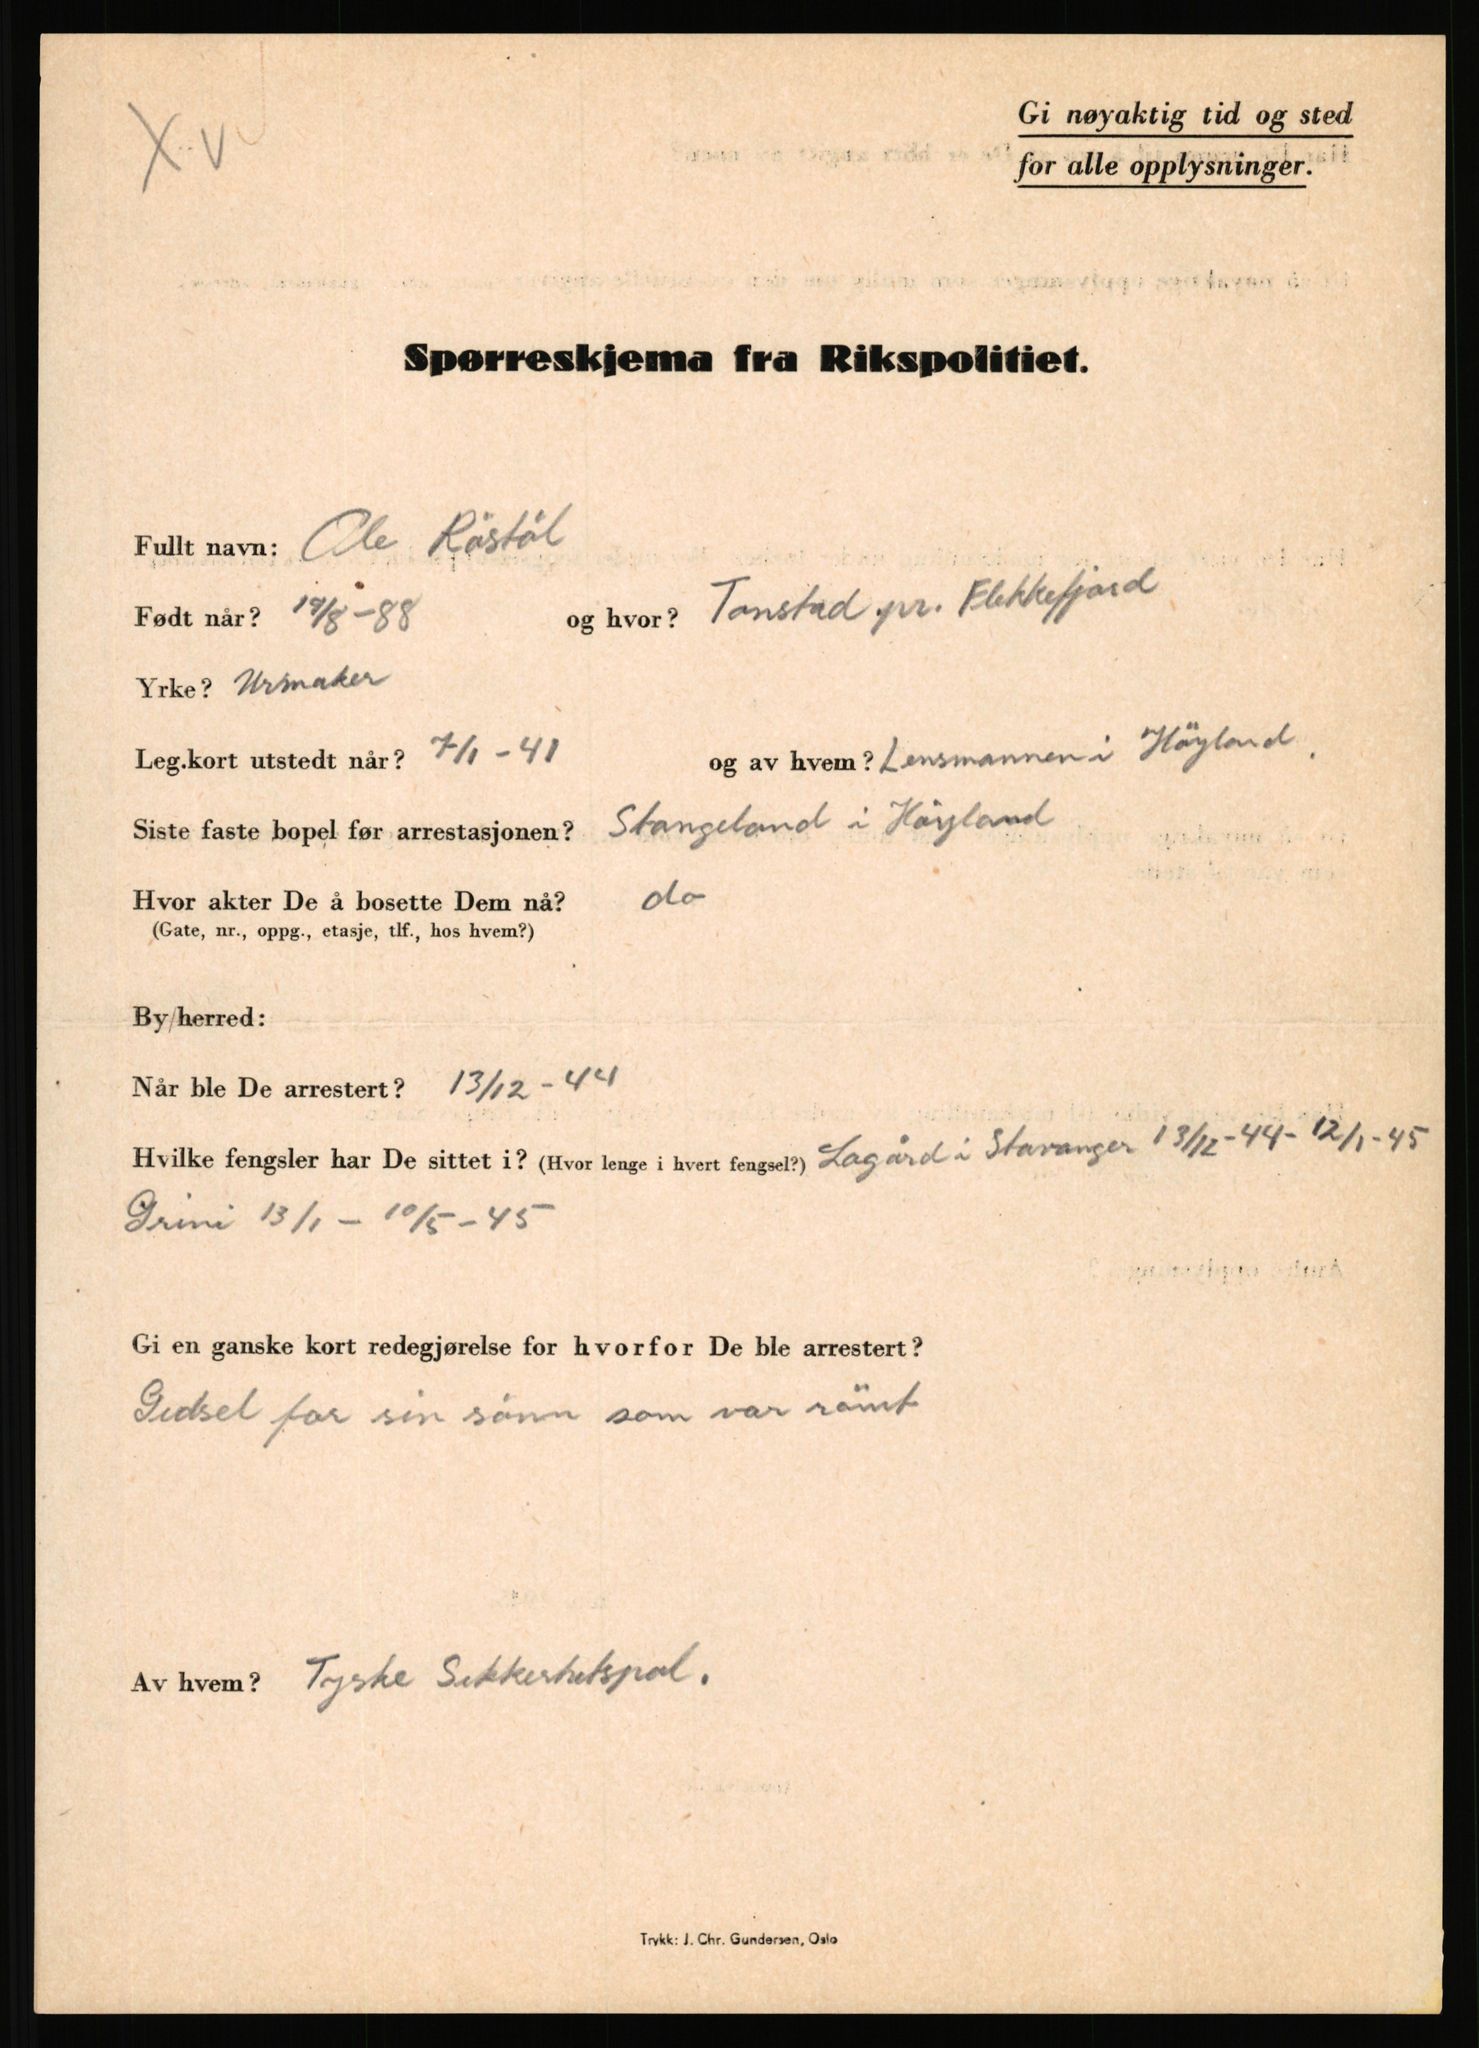 X V
Gi nøyaktig tid og sted
for alle opplysninger.
Spørreskjema fra Rikspolitiet.
Fullt navn: Ole Röstöl
Født når? 19/8-88 og hvor? Tonstad pr. Flekkefjord
Yrke? Ursmaker
Leg.kort utstedt når? 7/1-41 og av hvem? Lensmannen i Höyland.
Siste faste bopel før arrestasjonen? Stangeland i Höyland
Hvor akter De å bosette Dem nå? do
(Gate, nr., oppg., etasje, tlf., hos hvem?)
By/herred:
Når ble De arrestert? 13/12-44
Hvilke fengsler har De sittet i? (Hvor lenge i hvert fengsel?) Lagård i Stavanger 13/12-44-12/1-45
Grini 13/1 - 10/5-45
Gi en ganske kort redegjørelse for hvorfor De ble arrestert?
Gidsel for sin sönn som var römt
Av hvem? Tyske Sikkerhetspol.
Trykk: J. Chr. Gundersen, Oslo